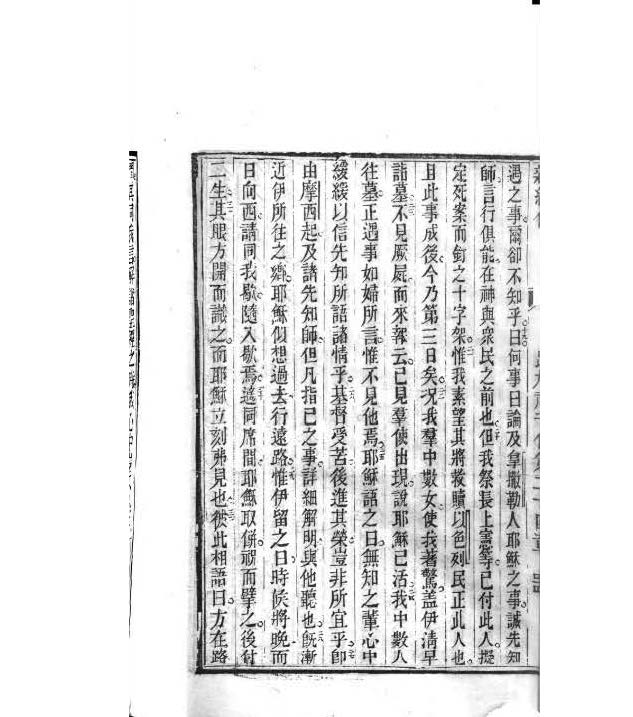 遇之事爾卻不知乎曰何事曰論及皇撒勒人耶穌之事誠先知
師言行俱能在神與衆民之前也但我祭長上憲等已付此人擬
定死案而釘之十字架惟我素望其將救贖以色列民正此人也
且此事成後今乃第三日矣况我羣中數女使我著驚盖伊清早
詣墓不見厥屍而來報云已見羣使出現說耶穌已活我中數人
往墓正遇事如婦所言惟不見他焉耶穌語之曰無知之輩心中
緩緩以信先知所語諸情乎基督受苦後進其榮豈非所宜乎卽
由摩西起及諸先知師但凡指己之事詳細解明與他聽也旣漸
近伊所往之鄉耶穌似想過去行遠路惟伊留之曰時候將晚而
日向西請同我歇隨入歇焉遙同席間耶穌取餅祝而擘之後付
二生其眼方開而識之而耶穌立刻弗見也彼此相語曰方在路